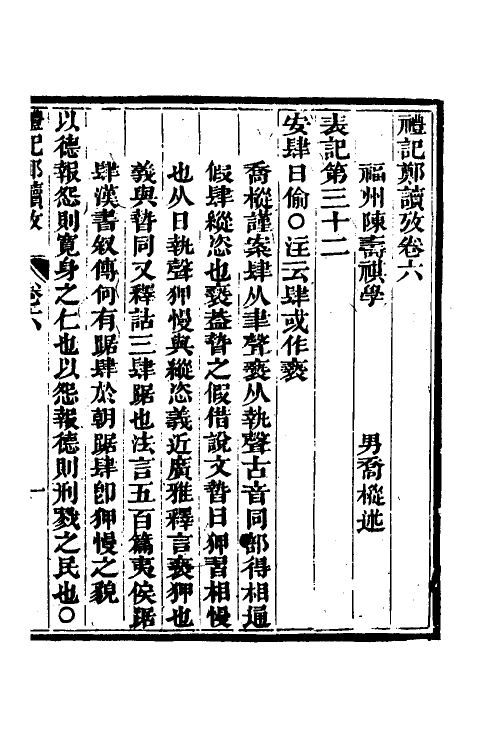 禮記鄭讀攷卷六
福州陳壽祺學　男喬樅述
表記第三十二
安肆日偷○注云肆或作褻
喬樅謹案肆从聿聲褻从執聲古音同部得相通
假肆縱恣也褻葢暬之假借說文暬日狎習相慢
也从日執聲狎慢與縱恣義近廣雅釋言褻狎也
義與暬同又釋詁三肆踞也法言五百篇夷俟踞
肆漢書敘傳何有踞肆於朝踞肆卽狎慢之貌
以德報怨則寬身之仁也以怨報德則刑戮之民也○
禮記鄭讀攷　卷六　一